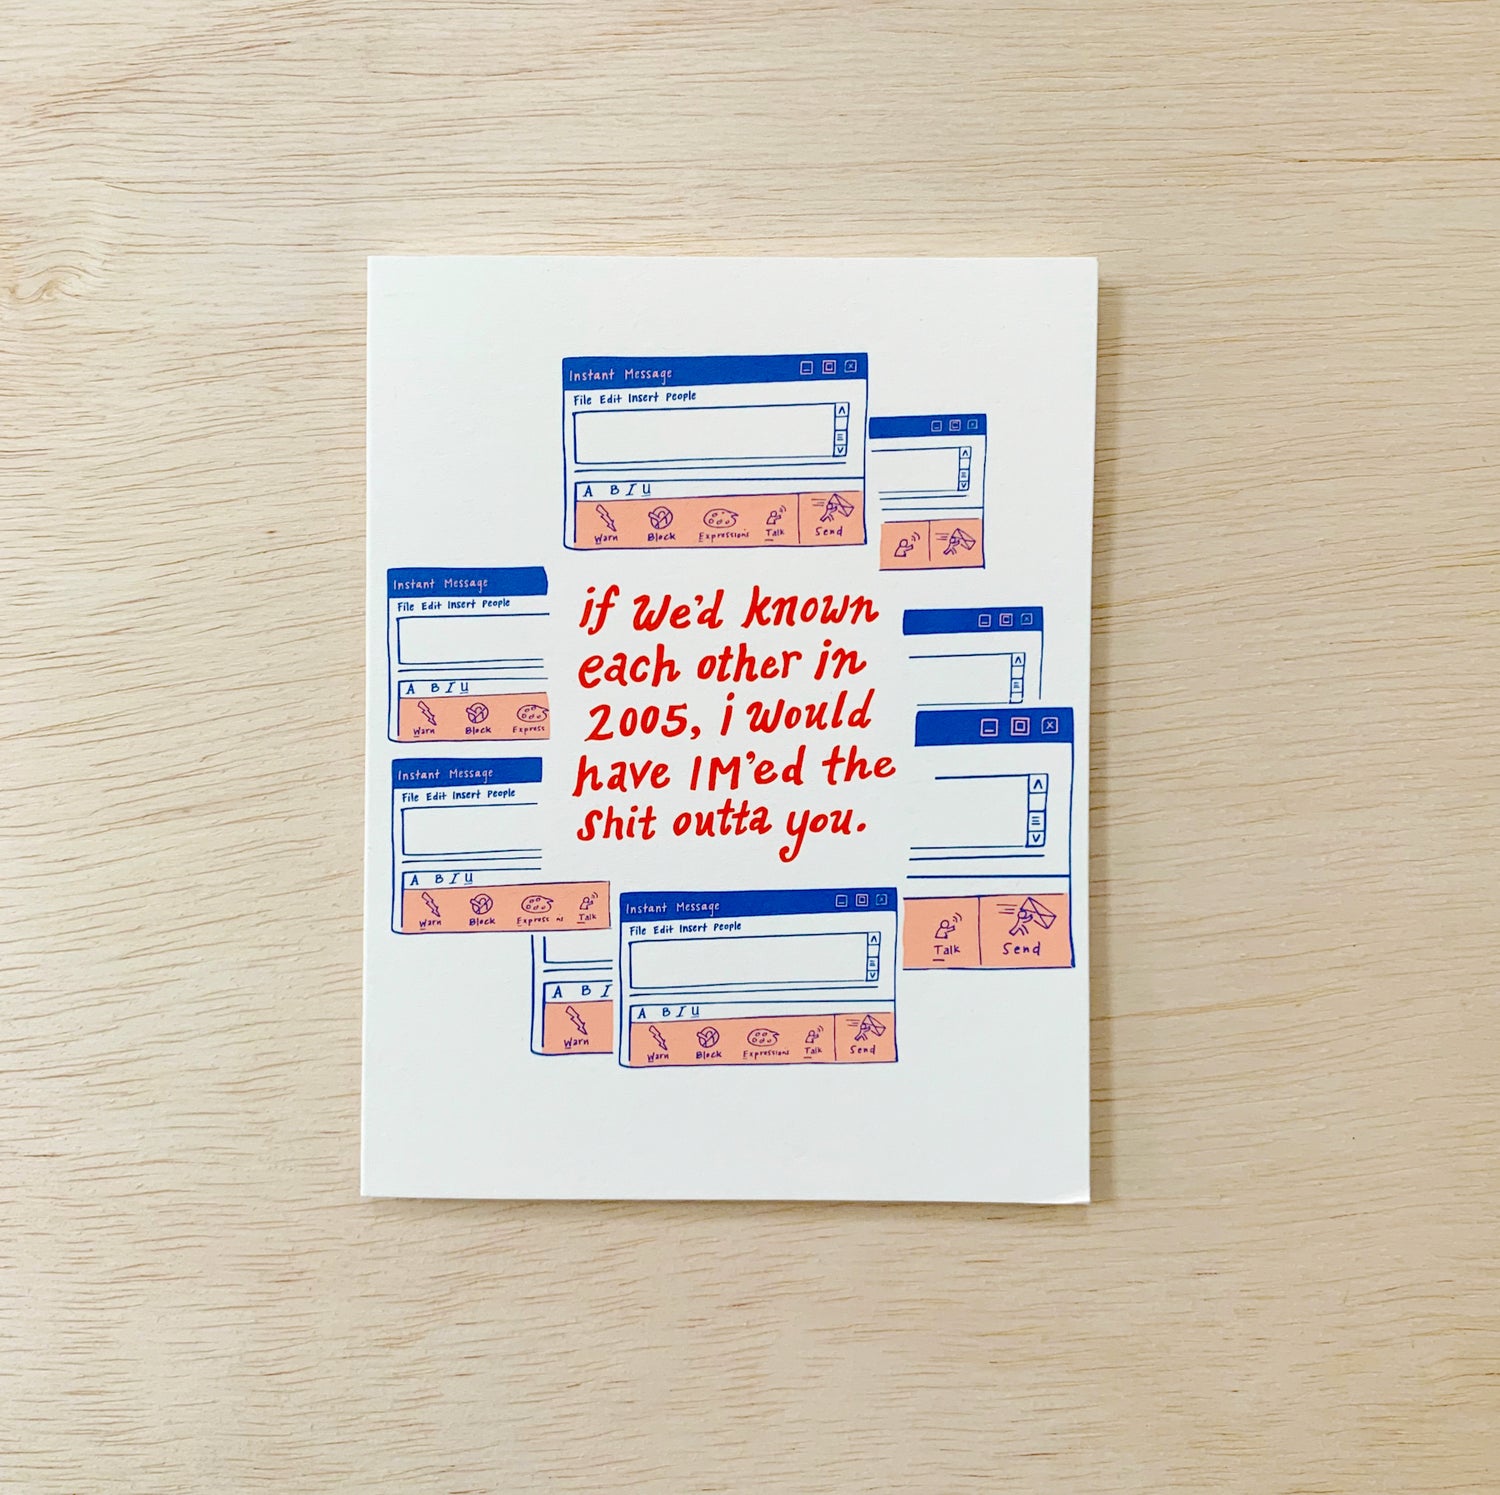 Instant Message
File Edit Insert People
A B I U
Warn Block Expressions Talk Send
Instant Message
File Edit Insert People
A B I U
Warn Block Express
if we'd known
each other in
2005, i would
have IM'ed the
shit outta you.
Instant Message
File Edit Insert People
A B I U
Warn Block Express ns Talk
Talk Send
A B I
Warn
Instant Message
File Edit Insert People
A B I U
Warn Block Expressions Talk Send